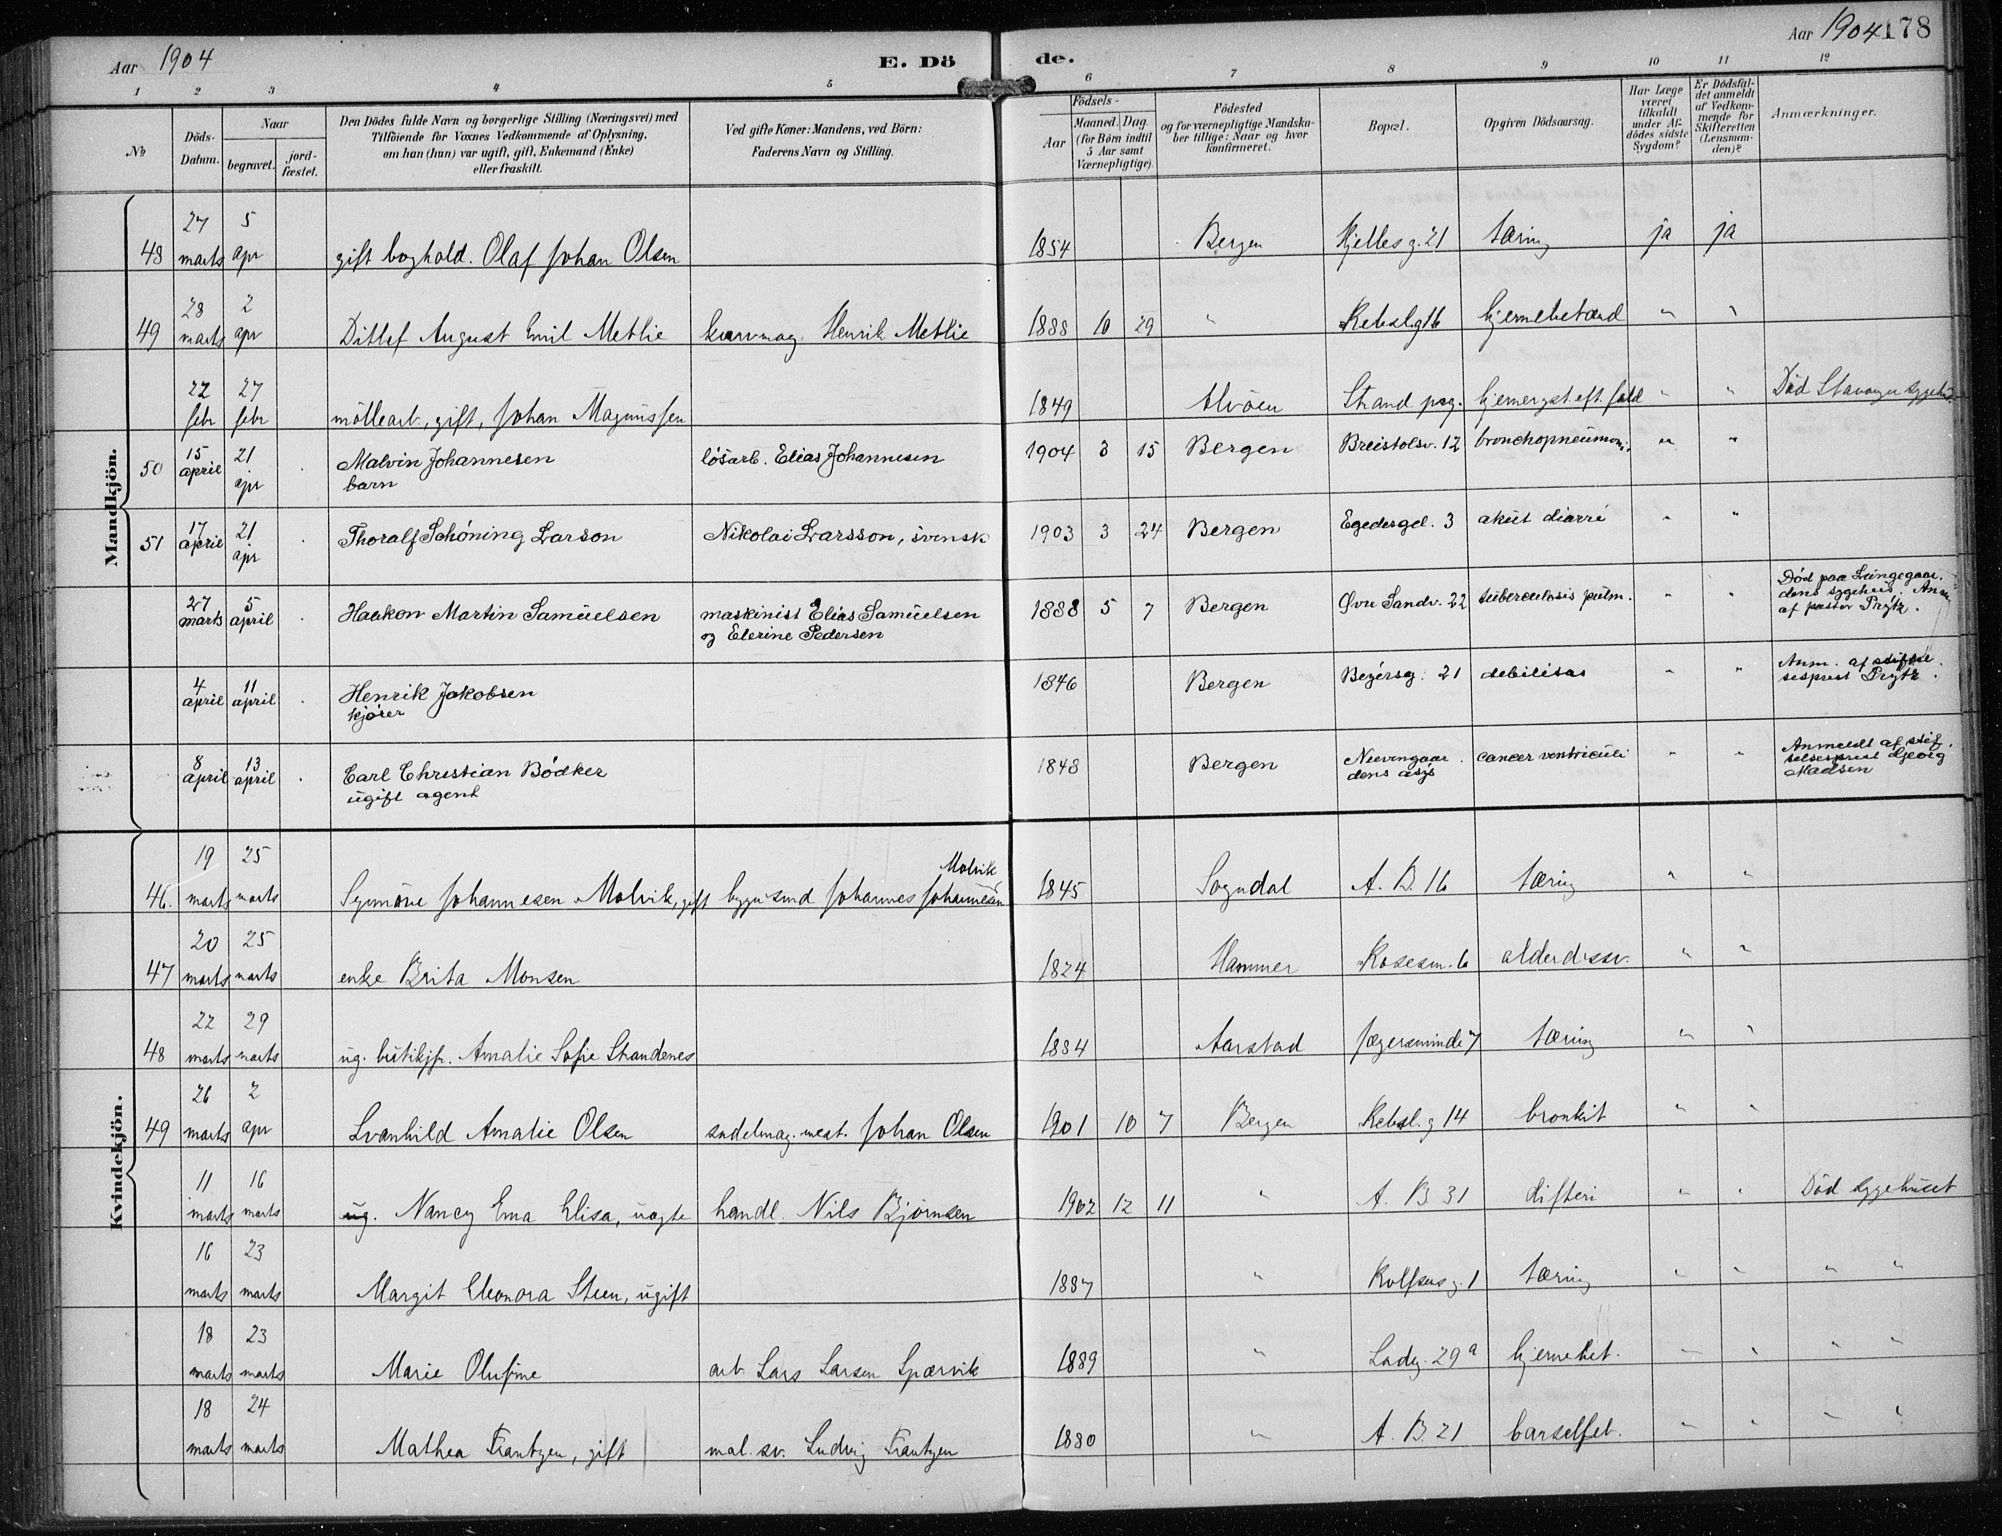 Aar 1904
E. Dö
de.
Aar 1904
178
1 2 3 4 5 6 7 8 9 10 11 12
№
Döds-
Datum.
Naar
begravet.
jord-
fæstet.
Den Dödes fulde Navn og borgerlige Stilling (Næringsvei) med
Tilföiende for Voxnes Vedkommende af Oplysning,
om han (hun) var ugift, gift, Enkemand (Enke)
eller fraskilt.
Ved gifte Koner: Mandens, ved Börn:
Faderens Navn og Stilling.
Födsels-
Aar
Maaned. Dag
(for Börn indtil
5 Aar samt
Værnepligtige)
Födested
og for værnepligtige Mandska-
ber tillige: Naar og hvor
konfirmeret.
Bopæl.
Opgiven Dödsaarsag.
Har Læge
været
tilkaldt
under Af-
dödes sidste
Sygdom?
Er Dödsfal-
det anmeldt
af Vedkom-
mende for
Skifteretten
(Lensman-
den)?
Anmærkninger.
Mandkjön.
48 27 marts 5 apr gift boghold. Olaf Johan Olsen 1854 Bergen Kjellesg. 21 tæring ja ja
49 28 marts 2 apr Ditlef August Emil Metlie kurvmag. Henrik Metlie 1888 10 29 " Rebslg 16 hjernebetænd " "
22 febr 27 febr möllearb., gift, Johan Magnussen 1849 Alvöen Strand pag. hjernergst. eft. fald " " Död Stavanger sygehus.
50 15 april 21 apr Malvin Johannesen löSarb. Elias Johannesen 1904 3 15 Bergen Breistolsv. 12 bronchopneumoni. " "
barn
51 17 april 21 apr Thoralf Schöning Larson Nikolai Larsson, svensk 1903 3 24 Bergen Egedesgd. 3 akut diarré " "
27 marts 5 april Haakon Martin Samuelsen maskinist Elias Samuelsen 1888 5 7 Bergen Øvre Sandv. 22 tuberculosis pulm. " " Död paa Lungegaar-
og Elerine Pedersen dens sygehus. Anm.
af pastor Prytz.
4 april 11 april Henrik Jakobsen 1846 Bergen Beyersg. 21 debilitas " " Anm. af stiftel-
kjörer sesprest Prytz.
8 april 13 april Carl Christian Bödker 1848 Bergen Neevengaar- cancer ventriculi " " Anmeldt af stif-
ugift agent dens asyl telsesprest Georg
Madsen
Kvindekjön.
Molvik
46. 19 marts 25 marts Synnöve Johannesen Molvik, gift bygn.smd Johannes Johannesen 1845 Sogndal A. B. 16 tæring " "
47 20 marts 25 marts enke Brita Monsen 1824 Hammer Rosesm. 6 alderdssv. " "
48 22 marts 29 marts ug. butikjfr. Amalie Sofie Strandenes 1884 Aarstad Jægersminde 7 tæring " "
49 26 marts 2 apr Svanhild Amalie Olsen sadelmag. mest. Johan Olsen 1901 10 7 Bergen Rebsl. g 14 bronkit " "
11 marts 16 marts ug. Nancy Ema Elisa, uægte handl. Nils Bjørnsen 1902 12 11 " A. B 31 difteri " " Död sygehuset
16 marts 23 marts Margit Eleonora Steen, ugift 1887 " Rolfsens g. 1 tæring " " " "
18 marts 23 marts Marie Olufine arb. Lars Larsen Spærvik 1889 " Ladeg. 29a hjernebet. " " " "
18 marts 24 marts Mathea Frantzen, gift mal. sv. Ludvig Frantzen 1880 " A. B. 21 barselfeb. " " " "